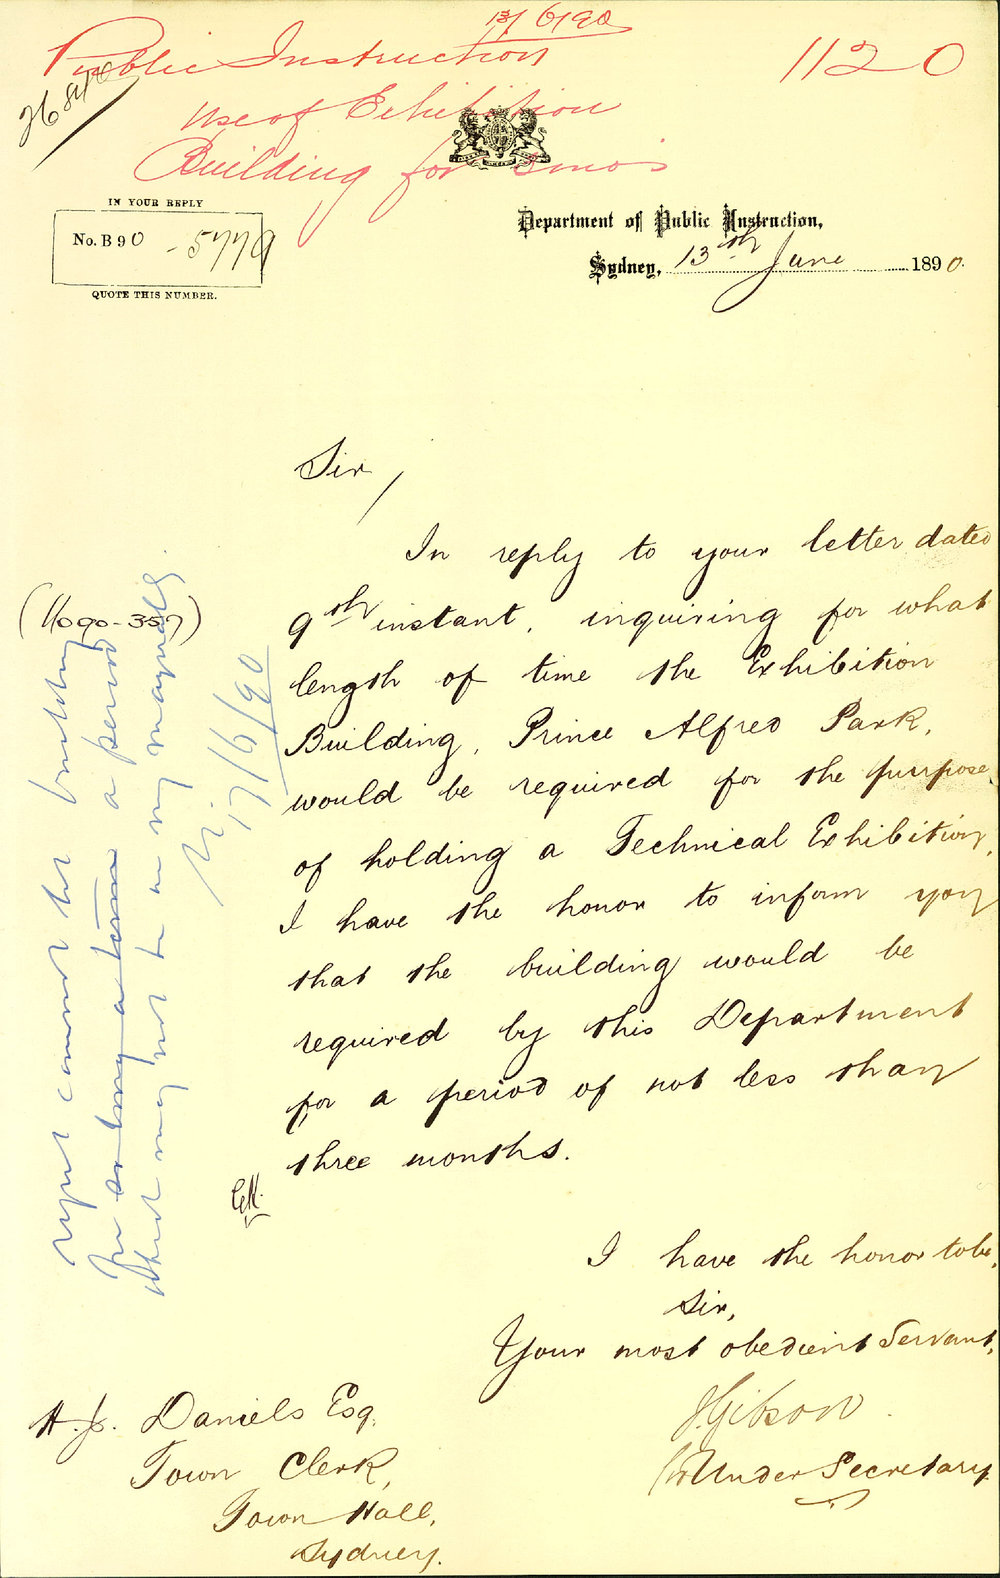 13/6/90
Public Instruction
1120
Use of Exhibition
Building for 3 mos
IN YOUR REPLY
No. B 90 - 5779
QUOTE THIS NUMBER.
Department of Public Instruction,
Sydney, 13th June 1890.
Sir,
In reply to your letter dated
9th instant, inquiring for what
length of time the Exhibition
Building, Prince Alfred Park,
would be required for the purpose
of holding a Technical Exhibition,
I have the honor to inform you
that the building would be
required by this Department
for a period of not less than
three months.
I have the honor to be,
Sir,
Your most obedient Servant,
J Gibson
for Under Secretary
H. J. Daniels Esq.
Town Clerk,
Town Hall,
Sydney.
(Ho 90-357)
regret cannot let building
for so long a term a period
17/6/90